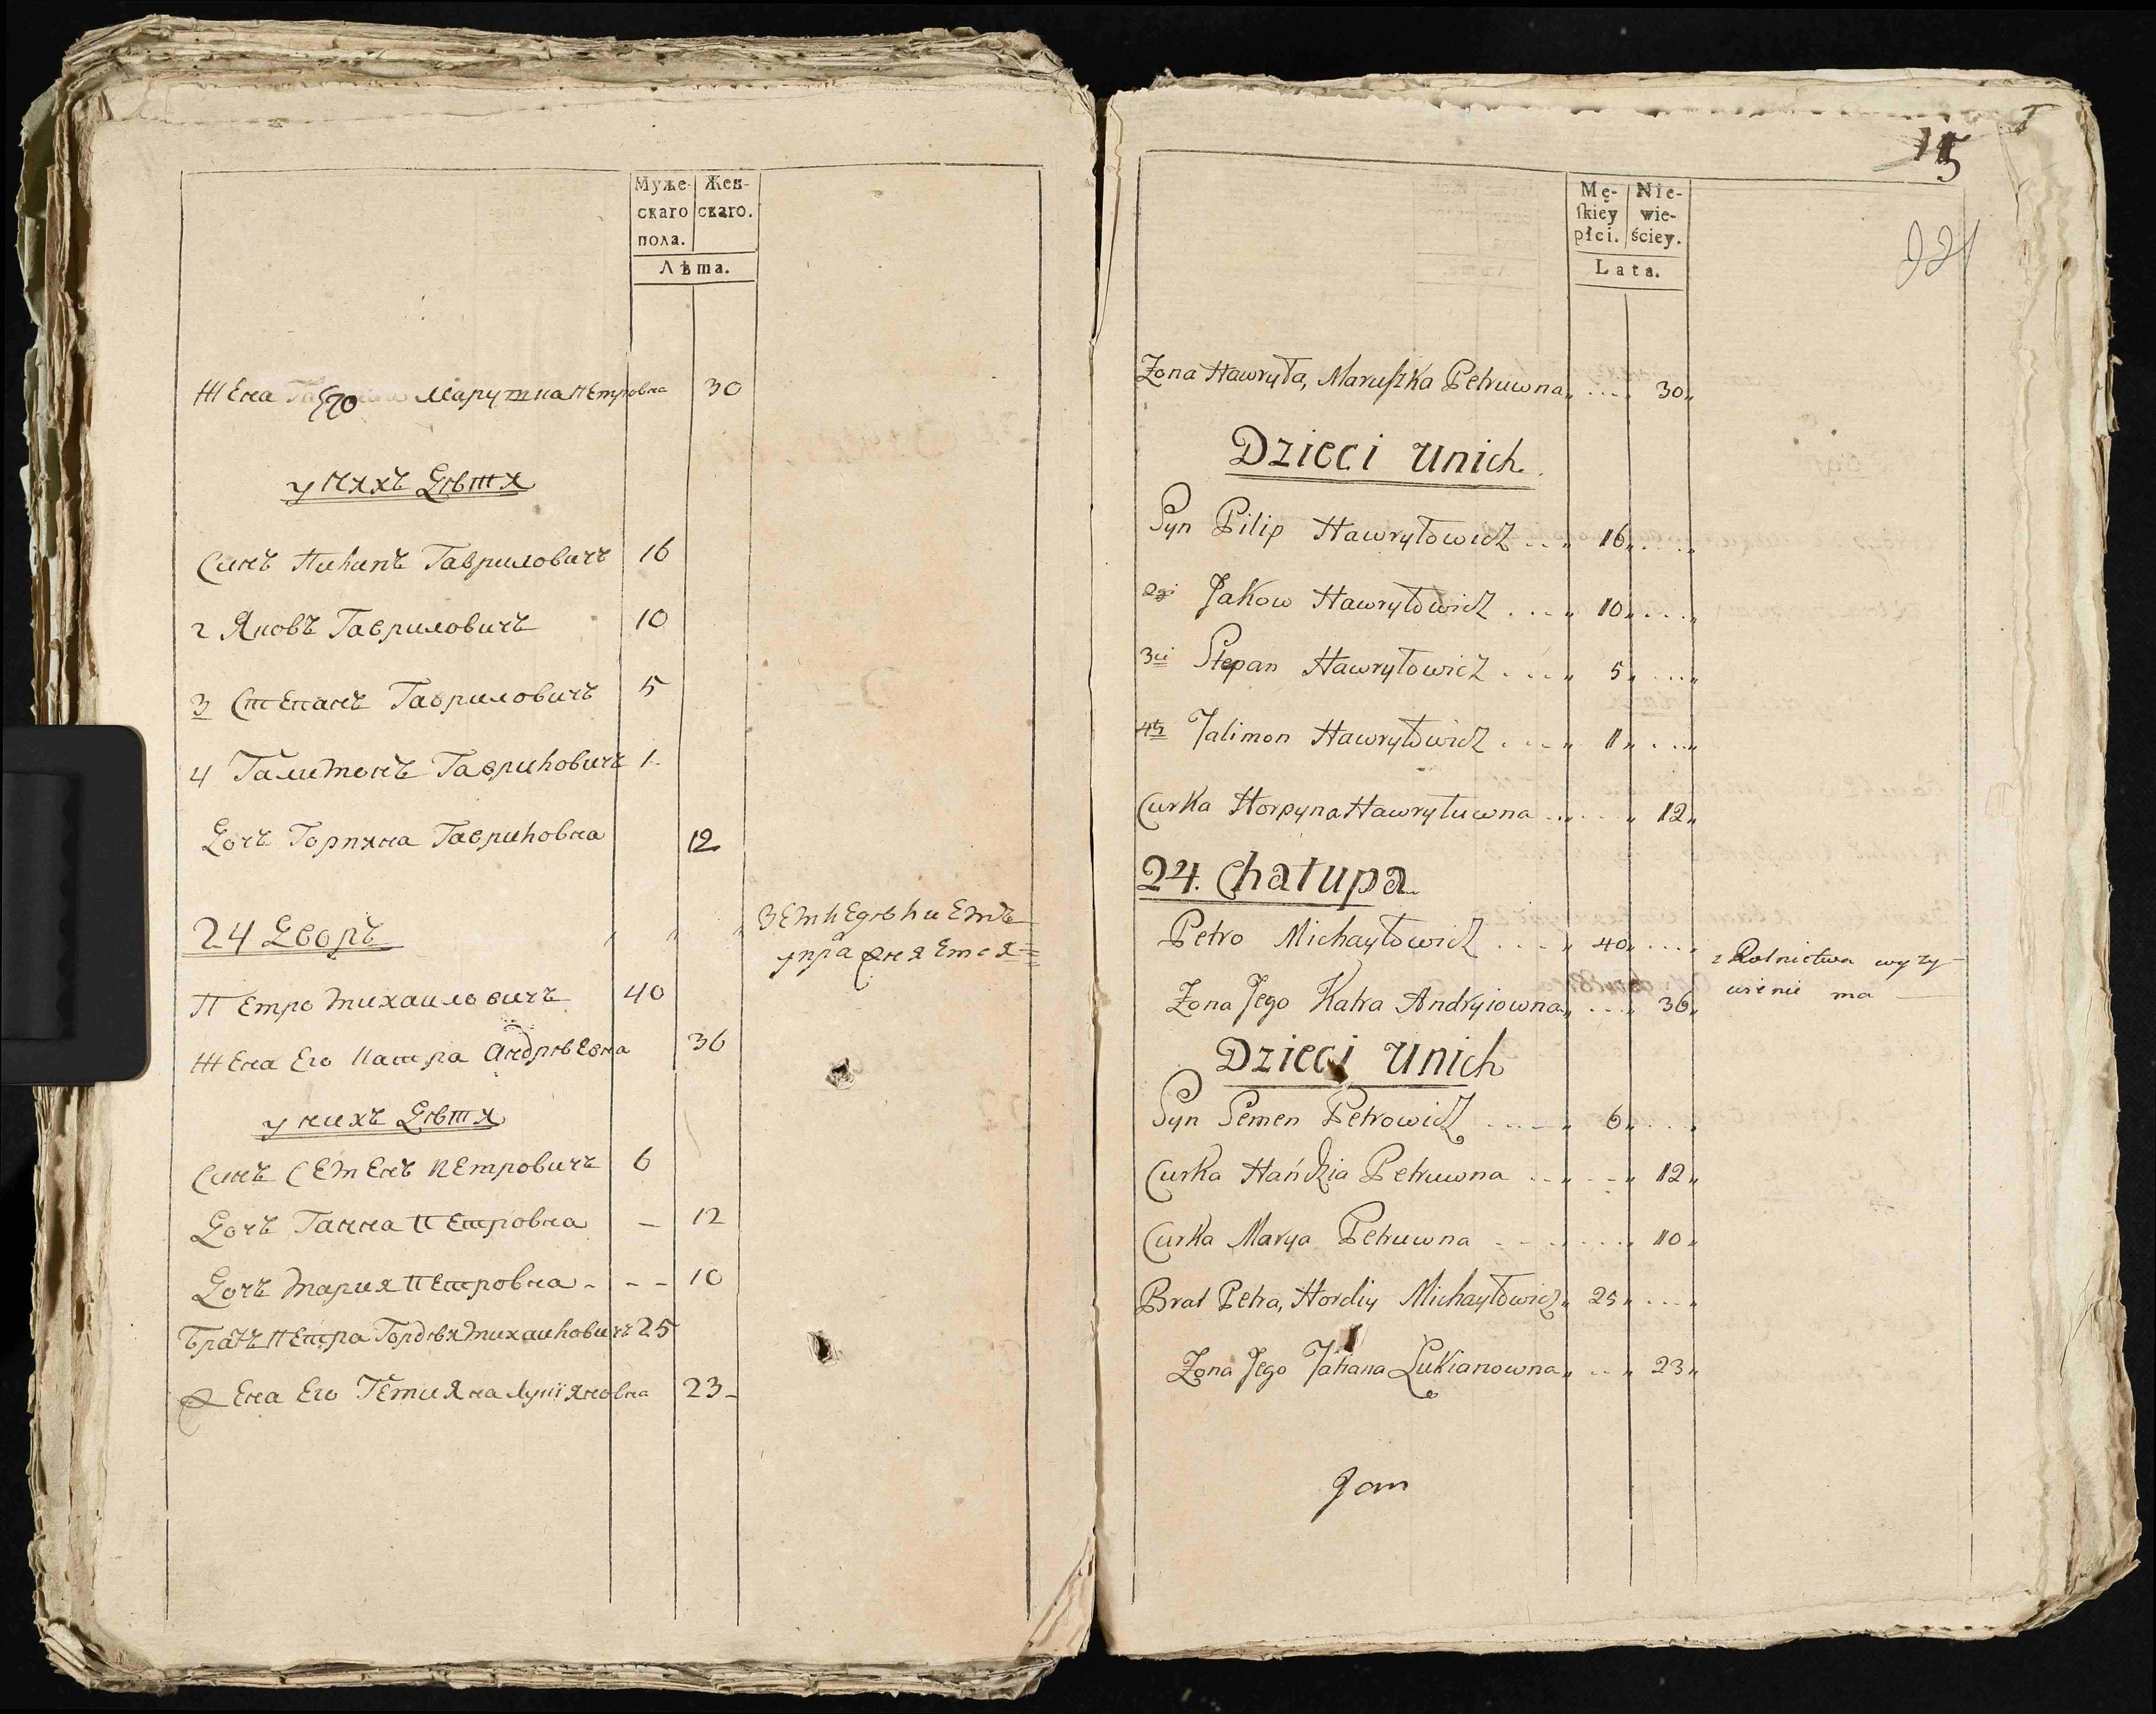 Муже-
скаго
пола.
Жен-
скаго.
Лѣта.
Жена Его Марушка Петровна 30
У нихъ Дѣти
Синъ Пилипъ Гавриловичъ 16
2 Яковъ Гавриловичъ 10
3 Степанъ Гавриловичъ 5
4 Талимонъ Гавриловичъ 1
Дочъ Горпина Гавриловна 12
24 Дворъ
Земледѣлиемъ
упражняется
Петро Михаиловичъ 40
Жена Его Катра Андрѣевна 36
У нихъ Дѣти
Синъ Семенъ Петровичъ 6
Дочъ Ганна Петровна — 12
Дочъ Мария Петровна - - - 10
Братъ Петра Гордѣй Михаиловичъ 25
Жена Его Тетияна Лукіяновна 23
15
Mę-
ſkiey
płci.
Nie-
wie-
ściey.
Lata.
Zona Hawryła, Maruſzka Petruwna 30
Dzieci Unich
Syn Pilip Hawryłowicz 16
2gi Jakow Hawryłowicz 10
3ci Stepan Hawryłowicz 5
4ty Talimon Hawryłowicz 1
Curka Horpyna Hawryłuwna 12
24. Chałupa
Petro Michayłowicz 40
z Rolnictwa wyży-
wienie ma
Zona Jego Katra Andryiowna 36
Dzieci Unich
Syn Semen Petrowicz 6
Curka Hańdzia Petruwna 12
Curka Marya Petruwna 10
Brat Petra, Hordiy Michayłowicz 25
Zona Jego Tatiana Lukianowna 23